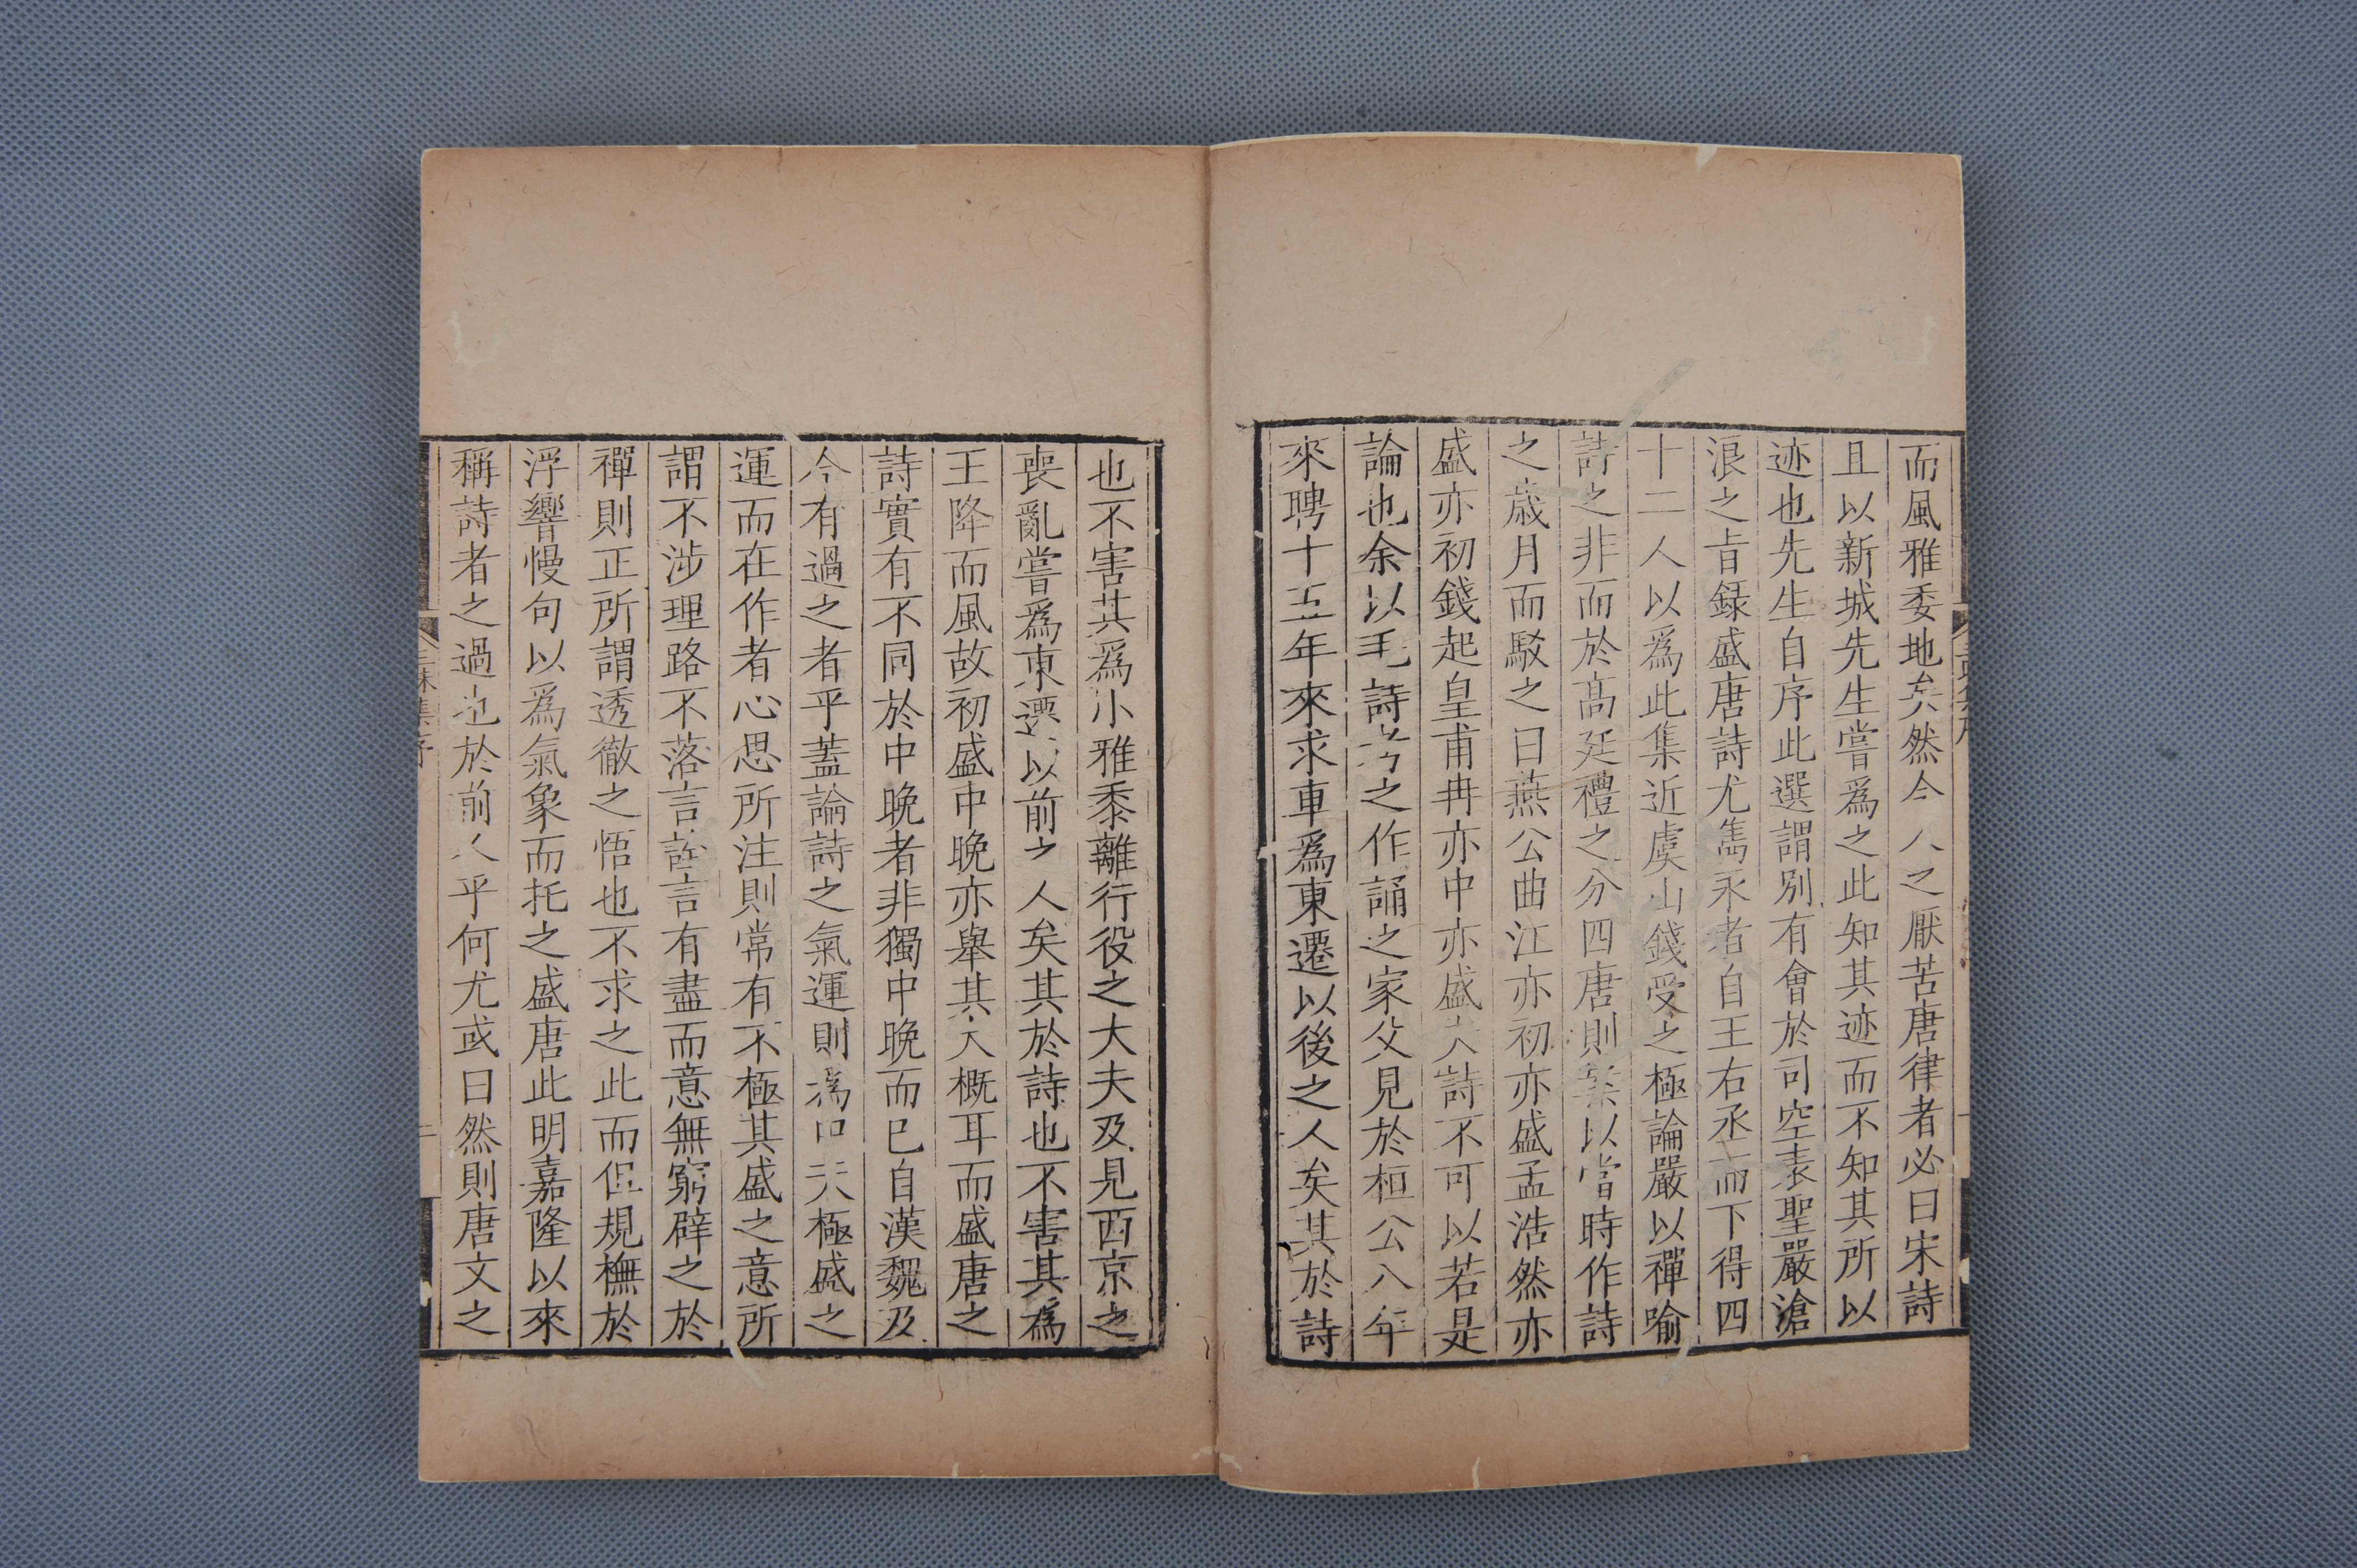 而風雅委地矣然今人之厭苦唐律者必曰宋詩
且以新城先生嘗爲之此知其迹而不知其所以
迹也先生自序此選謂别有會於司空表聖嚴滄
浪之旨録盛唐詩尤雋永者自王右丞而下得四
十二人以爲此集近虞山錢受之極論嚴以禪喻
詩之非而於髙廷禮之分四唐則案以當時作詩
之歲月而駁之曰燕公曲江亦初亦盛孟浩然亦
盛亦初錢起皇甫冉亦中亦盛夫詩不可以若是
論也余以毛詩考之作誦之家父見於桓公八年
來聘十五年來求車爲東遷以後之人矣其於詩
也不害其爲小雅黍離行役之大夫及見西京之
喪亂嘗爲東遷以前之人矣其於詩也不害其爲
王降而風故初盛中晚亦舉其大槪耳而盛唐之
詩實有不同於中晚者非獨中晚而已自漢魏及
今有過之者乎蓋論詩之氣運則爲中天極盛之
運而在作者心思所注則常有不極其盛之意所
謂不涉理路不落言詮言有盡而意無窮辟之於
禪則正所謂透徹之悟也不求之此而但規橅於
浮響慢句以爲氣象而托之盛唐此明嘉隆以來
稱詩者之過也於前人乎何尤或曰然則唐文之
三昧集序